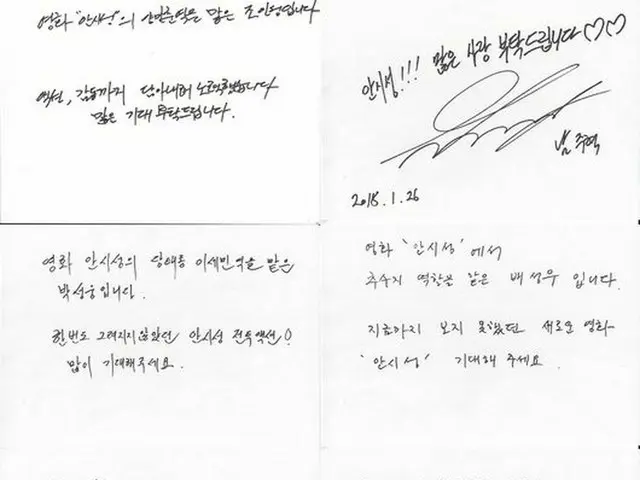 영화 "안시성"의 양만춘역을 맡은 조인성입니다
액션, 감동까지 담아내려 노력했습니다
많은 기대 부탁드립니다.
안시성!!! 많은 사랑 부탁드립니다♡♡
남주혁
2018.1.26
영화 안시성의 당태종 이세민역을 맡은
박성웅입니다.
한번도 그려지지않았던 안시성 전투액션!
많이 기대해주세요.
영화 '안시성'에서
추수지 역할을 맡은 배성우 입니다.
지금까지 보지 못했던 새로운 영화
'안시성' 기대해 주세요.